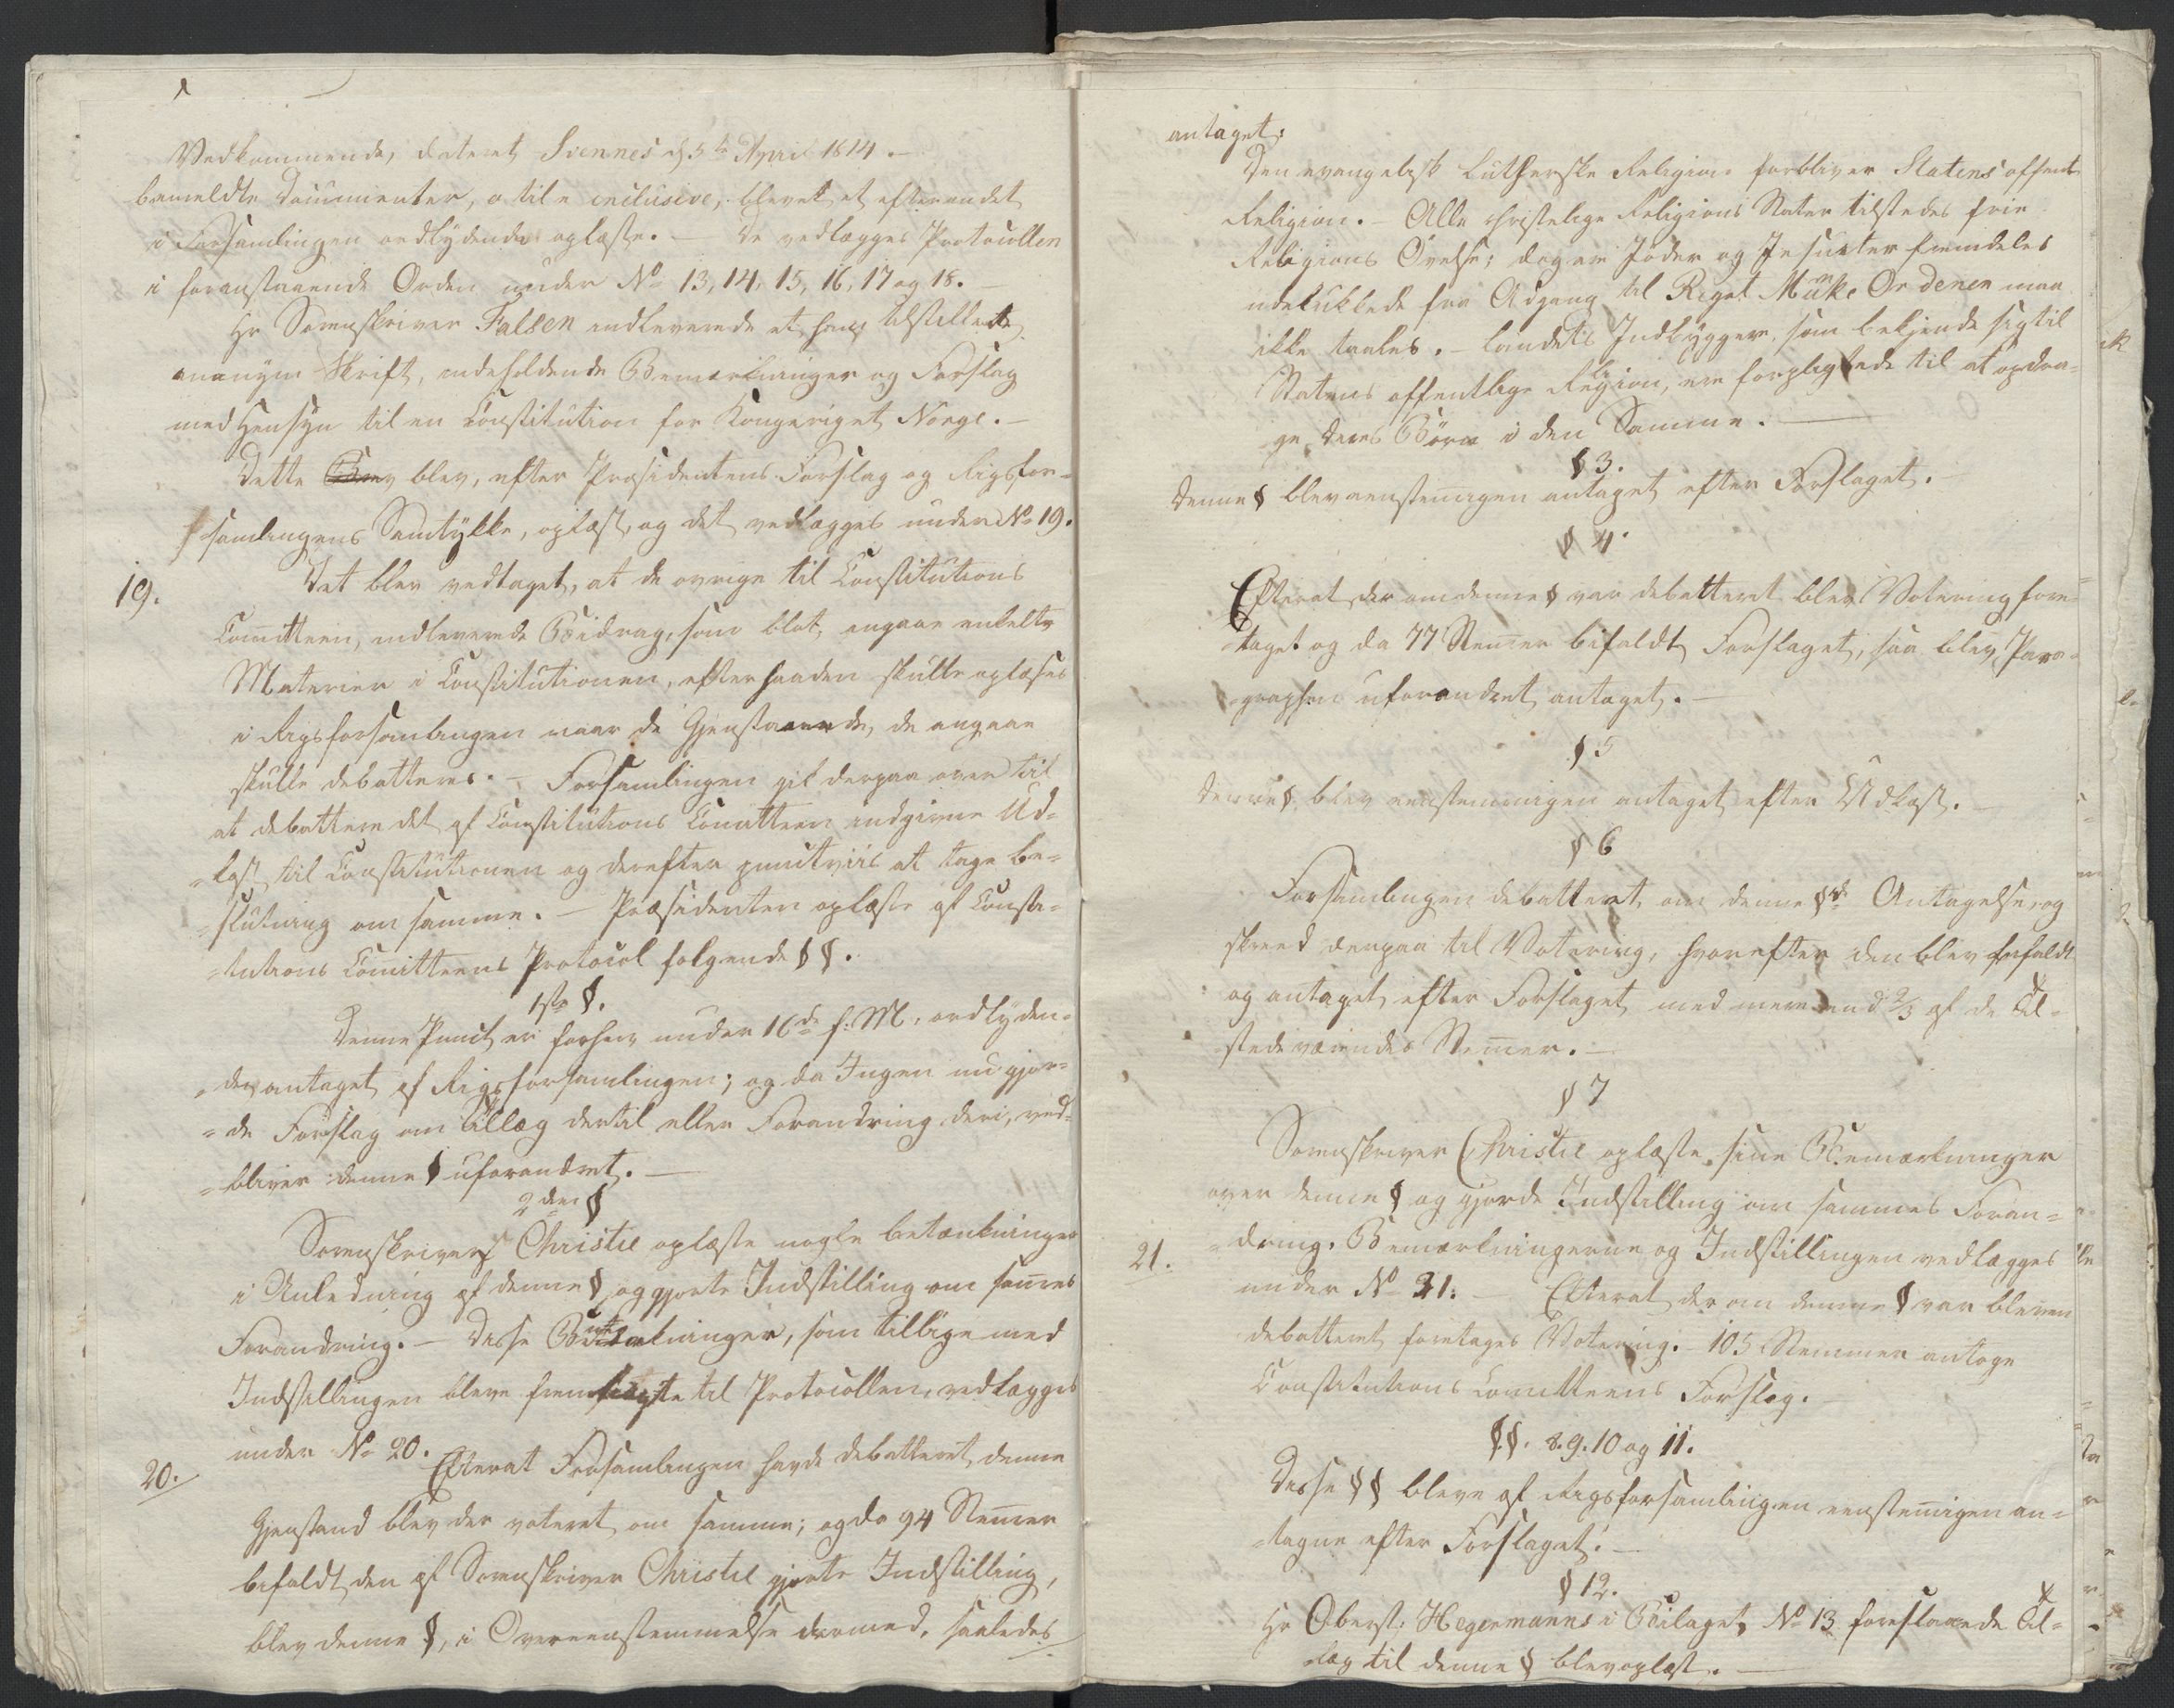 Vedkommende, dateret Siennes d. 5te April 1814. –
bemeldte Documenter, a til e inclusive, blevet et efter andet
i Forsamlingen ordlydende oplæste. – De vedlægges Protocollen
i foranstaaende Orden under No 13, 14, 15, 16, 17 og 18. –
Hr Sorenskriver Falsen indleverede et ham tilstillet
ananym Skrift, indeholdende Bemærkninger og Forslag
med Hensyn til en Constitution for Kongeriget Norge. –
Dette blev, efter Præsidentens Forslag og Rigsfor=
samlingens Samtykke, oplæst, og det vedlægges under No 19.
19.
Det blev vedtaget, at de øvrige til Constitutions
Comitteen, indleverede Bidrag, som blot, angaae enkelte
Materier i Constitutionen, efterhaanden skulle oplæses
i Rigsforsamlingen naar de Gjenstaande, de angaae
skulle debatteres. – Forsamlingen gik derpaa over til
at debattere det af Constitutions Comitteen indgivne Ud=
=kast til Constitutionen og derefter punctviis at tage be=
=slutning om samme. – Præsidenten oplæste af Consti=
=tutions Comitteens Protocol følgende §§.
1ste §.
Denne Punct er forhen under 16de f: M. ordlyden=
=de antaget af Rigsforsamlingen; og da Ingen nu gjor=
=de Forslag om Tillæg dertil eller Forandring deri, ved=
=bliver denne § uforandret. –
2den §
Sorenskriver Christie oplæste nogle betænkninger
i Anledning af denne § og gjorte Indstilling om sam̄es
Forandring. – Disse Betænkninger, som tillige med
Indstillingen bleve fremlagte til Protocollen, vedlægges
under No 20.
20.
Efterat Forsamlingen havde debatteret denne
Gjenstand blev der voteret om samme; og da 94 Stem̄er
bifaldt den af Sorenskriver Christie gjorte Indstilling,
blev denne §, i Overeenstemmelse dermed, saaledes
antaget:
Den evangelisk Lutherske Religion forbliver Statens offentl
Religion. – Alle christelige Religions Secter tilstedes frie
Religions Øvelse; dog ere Jøder og Jesuiter fremdeles
udelukkede fra Adgang til Riget. Munke Ordener maa
ikke taales. – Landets Indbyggere, som bekjende sig til
Statens offentlige Religion, ere forpligtede til at opdra=
ge deres Børn i den Samme. –
§ 3.
Denne § blev eenstem̄igen antaget efter Forslaget. –
§ 4.
Efterat der om denne § var debatteret blev Votering fore=
=taget og da 77 Stem̄er bifaldt Forslaget, saa blev Para=
=graphen uforandret antaget. –
§ 5
Denne § blev eenstemmigen antaget efter Udkast. –
§ 6
Forsamlingen debatteret om denne §s Antagelse og
skreed derpaa til Votering, hvorefter den blev bifaldt
og antaget efter Forslaget med mere end 2/3 af de Til=
stedeværendes Stem̄er. –
§ 7
Sorenskriver Christie oplæste sine Bemærkninger
over denne § og gjorde Indstilling om sammes Foran=
=dring. Bemærkningerne og Indstillingen vedlægges
21.
under No 21. – Efterat der om denne § var bleven
debatteret foretages Votering. – 105 Stemmer antoge
Constitutions Comitteens Forslag.
§§. 8. 9. 10 og 11.
Disse §§ bleve af Rigsforsamlingen eenstem̄igen an=
=tagne efter Forslaget. –
§ 12.
Hr Oberst: Hegermanns i Bilaget No 13 foreslaaede Til=
=læg til denne § blev oplæst. –